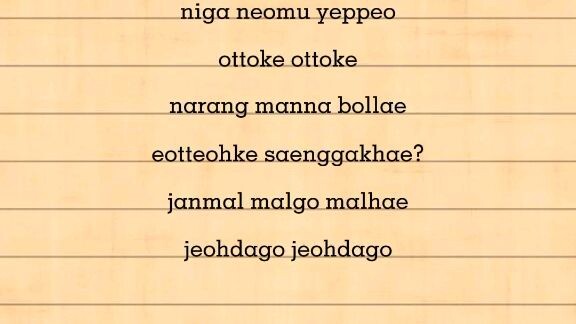 niga neomu yeppeo
ottoke ottoke
narang manna bollae
eotteohke saenggakhae?
janmal malgo malhae
jeohdago jeohdago